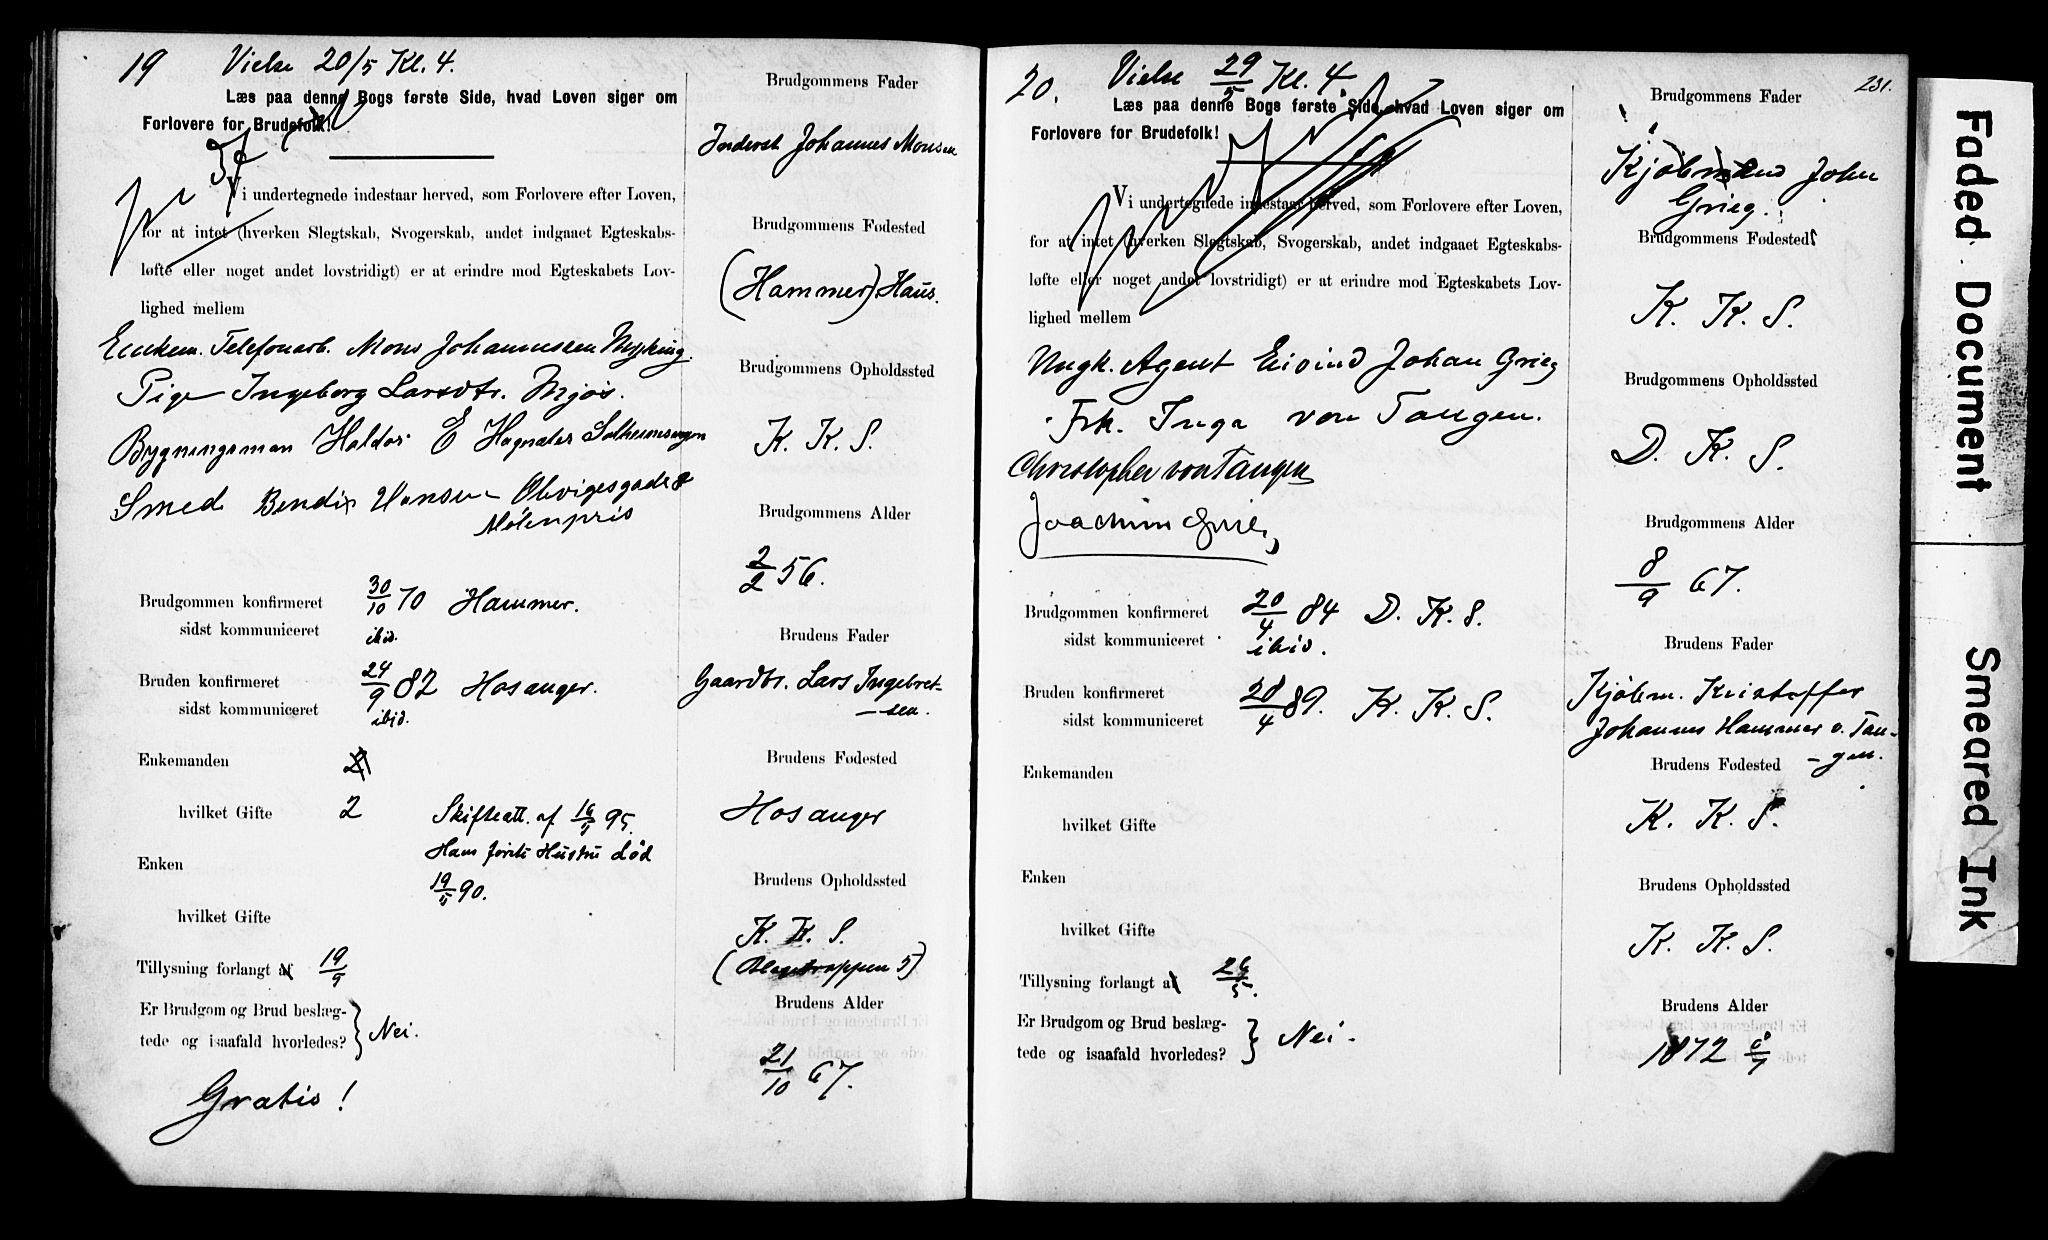 19 Vielse 20/5 Kl. 4.
Læs paa denne Bogs første Side, hvad Loven siger om
Forlovere for Brudefolk!
Vi undertegnede indestaar herved, som Forlovere efter Loven,
for at intet (hverken Slegtskab, Svogerskab, andet indgaaet Egteskabs-
løfte eller noget andet lovstridigt) er at erindre mod Egteskabets Lov-
lighed mellem
Enkem. Telefonarb. Mons Johannessen
Pige Ingeborg Larsdtr. Mjøs.
Bygningsman Haldor E Solheimsvegen
Smed Bendix Hansen
Mølenpris
Brudgommen konfirmeret 30/10 70 Hammer.
sidst kommuniceret ibid.
Bruden konfirmeret 24/9 82 Hosanger.
sidst kommuniceret ibid.
Enkemanden
hvilket Gifte 2 Skifteatt. af 95.
Hans første Hustru død
Enken 90.
hvilket Gifte
Tillysning forlangt af
Er Brudgom og Brud beslæg-
tede og isaafald hvorledes? } Nei.
Gratis!
Brudgommens Fader
Inderst Johannes Monsen
Brudgommens Fødested
(Hammer) Haus.
Brudgommens Opholdssted
K. K. S.
Brudgommens Alder
2/2 56.
Brudens Fader
Gaardbr. Lars Ingebret-
-sen.
Brudens Fødested
Hosanger
Brudens Opholdssted
K. K. S.
5)
Brudens Alder
21/10 67.
20. Vielse 29/5 Kl. 4.
Læs paa denne Bogs første Side, hvad Loven siger om
Forlovere for Brudefolk!
Vi undertegnede indestaar herved, som Forlovere efter Loven,
for at intet (hverken Slegtskab, Svogerskab, andet indgaaet Egteskabs-
løfte eller noget andet lovstridigt) er at erindre mod Egteskabets Lov-
lighed mellem
Ungk. Agent Eivind Johan Grieg
Frk. Inga von Tangen.
Christopher von Tangen
Joachim Grieg
Brudgommen konfirmeret 20/4 84 D. K. S.
sidst kommuniceret ibid.
Bruden konfirmeret 28/4 89. K. K. S.
sidst kommuniceret
Enkemanden
hvilket Gifte
Enken
hvilket Gifte
Tillysning forlangt af 26/5.
Er Brudgom og Brud beslæg-
tede og isaafald hvorledes? } Nei.
231.
Brudgommens Fader
Kjøbmand John
Grieg.
Brudgommens Fødested
K. K. S.
Brudgommens Opholdssted
D. K. S.
Brudgommens Alder
8/9 67.
Brudens Fader
Kjøbm. Kristoffer
Johannes Hammer v. Tan-
-gen.
Brudens Fødested
K. K. S.
Brudens Opholdssted
K. K. S.
Brudens Alder
1872
Faded Document
Smeared Ink